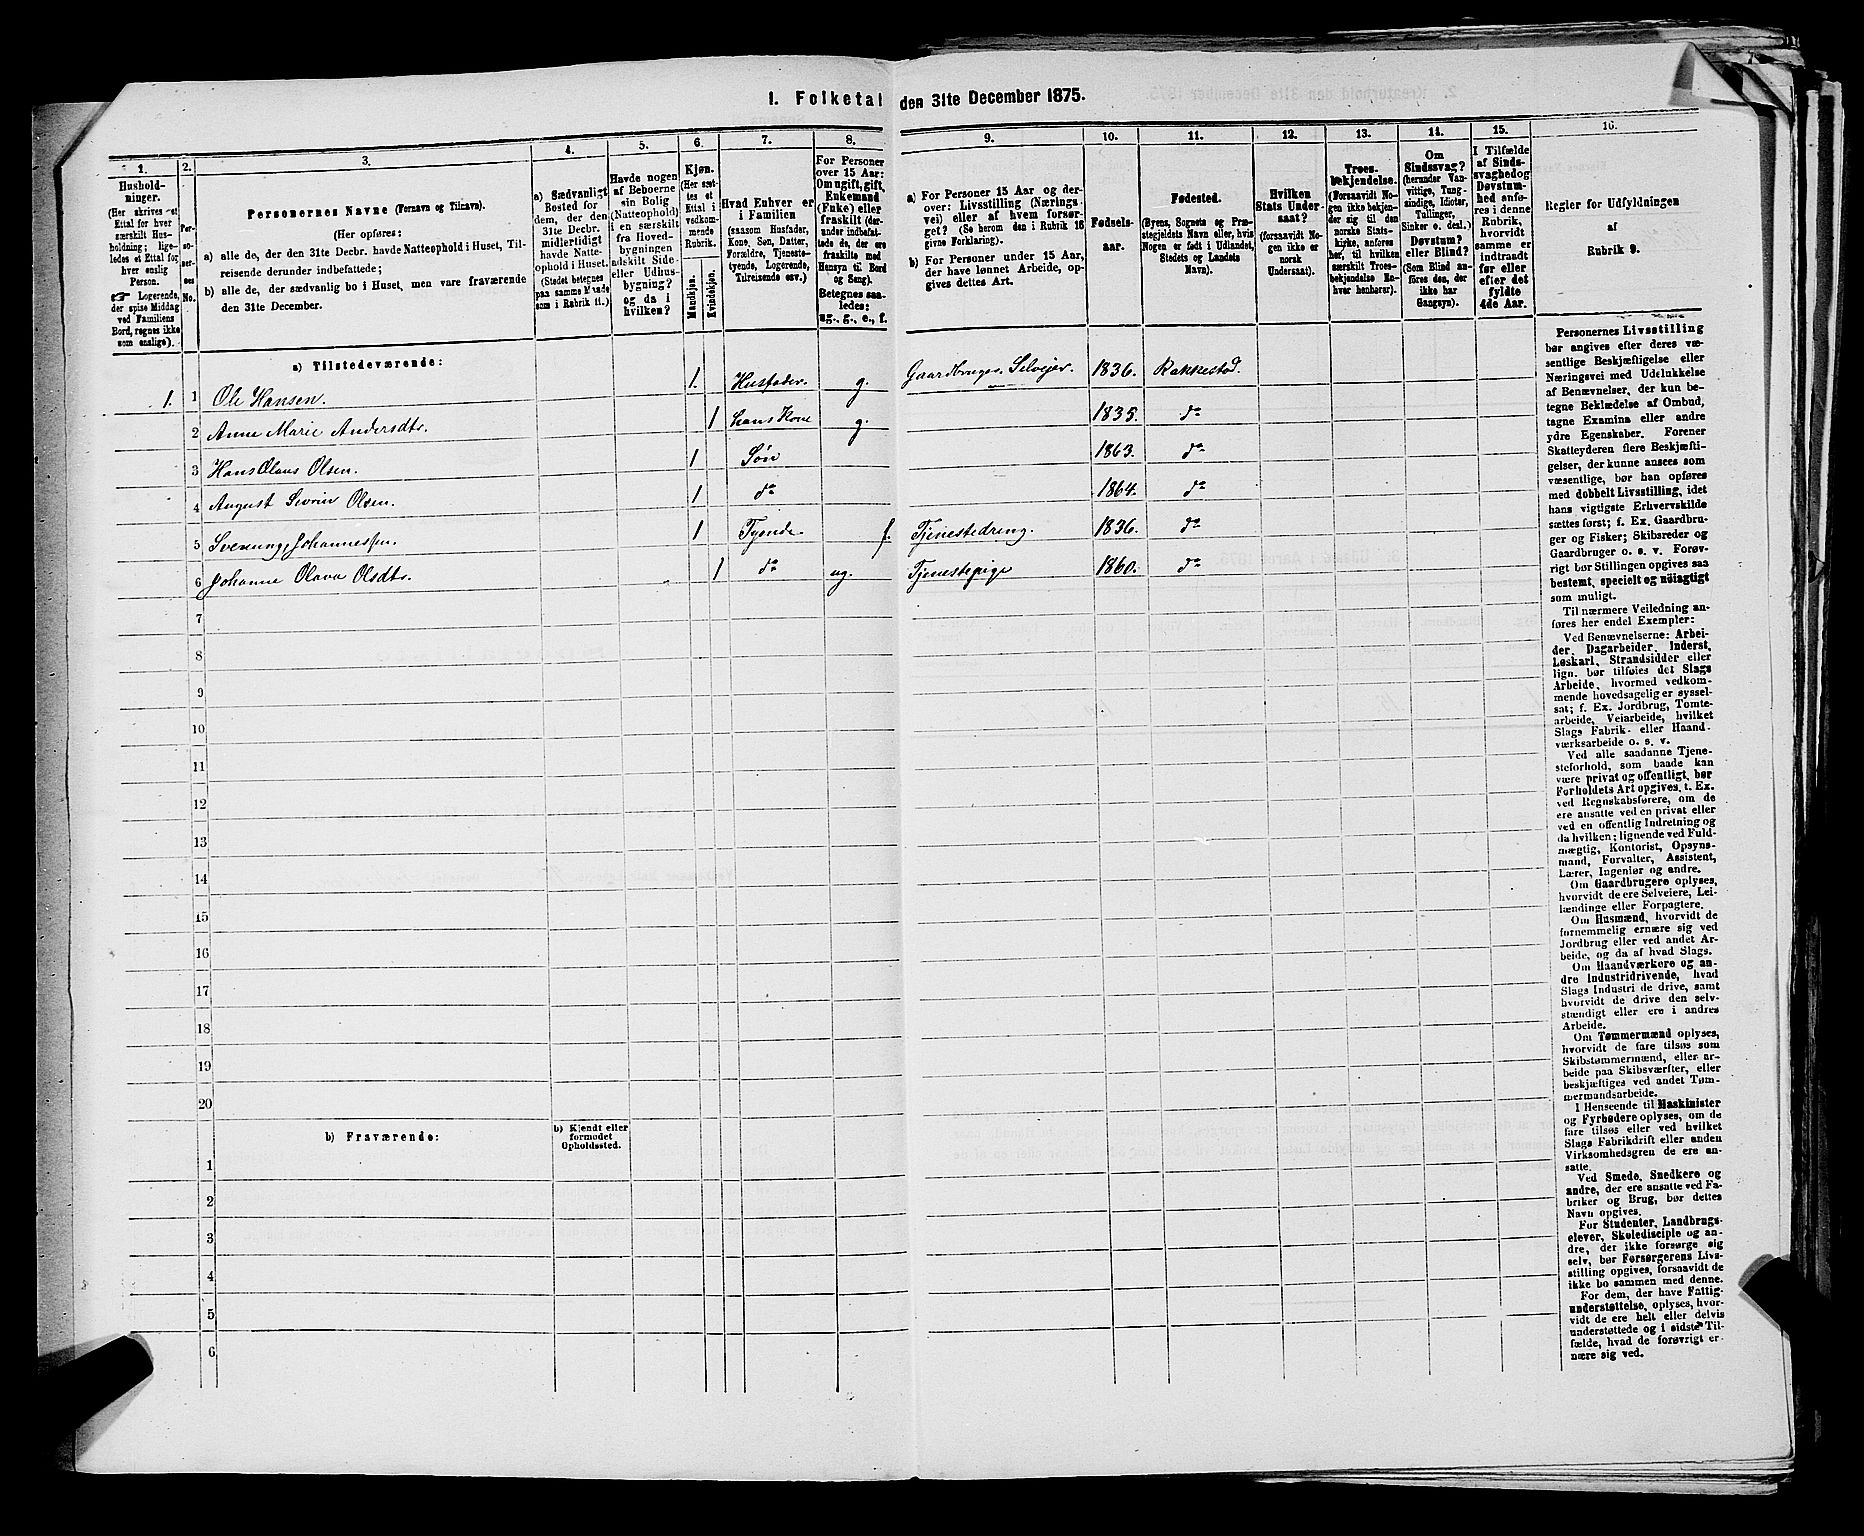 1. Folketal den 31te December 1875.
1.
Hushold-
ninger.
(Her skrives et
Ettal for hver
særskilt Hus-
holdning; lige-
ledes et Ettal for
hver enslig
Person.
☞ Logerende,
der spise Middag
ved Familiens
Bord, regnes ikke
som enslige).
2.
Per-
so-
ner-
nes
No.
3.
Personernes Navne (Fornavn og Tilnavn).
(Her opføres:
a) alle de, der den 31te Decbr. havde Natteophold i Huset, Til-
reisende derunder indbefattede;
b) alle de, der sædvanlig bo i Huset, men vare fraværende
den 31te December.
4.
a) Sædvanligt
Bosted for
dem, der den
31te Decbr.
midlertidigt
havde Natte-
ophold i Huset.
(Stedet betegnes
paa samme Maade
som i Rubrik 11.)
5.
Havde nogen
af Beboerne
sin Bolig
(Natteophold)
i en særskilt
fra Hoved-
bygningen
adskilt Side-
eller Udhus-
bygning?
og da i
hvilken?
6.
Kjøn.
(Her sæt-
tes et
Ettal i
vedkom-
mende
Rubrik.
Mandkjøn.
Kvindekjøn.
7.
Hvad Enhver er
i Familien
(saasom Husfader,
Kone, Søn, Datter,
Forældre, Tjeneste-
tyende, Logerende,
Tilreisende osv.)
8.
For Personer
over 15 Aar:
Om ugift, gift,
Enkemand
(Enke) eller
fraskilt (der-
under indbefat-
tede de, der ere
fraskilte med
Hensyn til Bord
og Seng).
Betegnes saa-
ledes:
ug., g., e., f.
9.
a) For Personer 15 Aar og der-
over: Livsstilling (Nærings-
vei) eller af hvem forsør-
get? (Se herom den i Rubrik 16
givne Forklaring).
b) For Personer under 15 Aar,
der have lønnet Arbeide, op-
gives dettes Art.
10.
Fødsels-
aar.
11.
Fødested.
(Byens, Sognets og Præ-
stegjeldets Navn eller, hvis
Nogen er født i Udlandet,
Stedets og Landets
Navn).
12.
Hvilken
Stats Under-
saat?
(forsaavidt No-
gen ikke er
norsk
Undersaat).
13.
Troes-
bekjendelse.
(Forsaavidt No-
gen ikke bekjen-
der sig til den
norske Stats-
kirke, anføres
her, til hvilken
særskilt Troes-
bekjendelse En-
hver henhører).
14.
Om
Sindssvag?
(herunder Van-
vittige, Tung-
sindige, Idioter,
Tullinger,
Sinker o. desl.)
Døvstum?
eller Blind?
(Som Blind an-
føres den, der
ikke har
Gangsyn).
15.
I Tilfælde
af Sinds-
svaghed og
Døvstum-
hed anfø-
res i denne
Rubrik,
hvorvidt
samme er
indtraadt
før eller
efter det
fyldte
4de Aar.
16.
Regler for Udfyldningen
af
Rubrik 9.
a) Tilstedeværende:
1. 1 Ole Hansen. 1. Husfader g. Gaardbruger Selveier 1836. Rakkestad.
2 Anne Marie Andersdtr. 1 hans Kone g. 1835. do
3 Hans Olaus Olsen. 1 Søn 1863. do
4 August Sevrin Olsen. 1 do 1864. do
5 Svenung Johannessen. 1 Tyende f. Tjenestedreng. 1836. do
6 Johanne Olava Olsdtr. 1 do ug. Tjenestepige 1860. do
7
8
9
10
11
12
13
14
15
16
17
18
19
20
b) Fraværende:
b) Kjendt eller
formodet
Opholdssted.
1
2
3
4
5
6
Personernes Livsstilling
bør angives efter deres væ-
sentlige Beskjæftigelse eller
Næringsvei med Udelukkelse
af Benævnelser, der kun be-
tegne Beklædelse af Ombud,
tagne Examina eller andre
ydre Egenskaber. Forener
Skatteyderen flere Beskjæfti-
gelser, der kunne ansees som
væsentlige, bør han opføres
med dobbelt Livsstilling, idet
hans vigtigste Erhvervskilde
sættes først; f. Ex. Gaardbru-
ger og Fisker; Skibsreder og
Gaardbruger o. s. v. Forøv-
rigt bør Stillingen opgives saa
bestemt, specielt og nøiagtigt
som muligt.
Til nærmere Veiledning an-
føres her endel Exempler:
Ved Benævnelserne: Arbei-
der, Dagarbeider, Inderst,
Løskarl, Strandsidder eller
lign. bør tilføies det Slags
Arbeide, hvormed vedkom-
mende hovedsagelig er syssel-
sat; f. Ex. Jordbrug, Tomte-
arbeide, Veiarbeide, hvilket
Slags Fabrik- eller Haand-
værksarbeide o. s. v.
Ved alle saadanne Tjene-
steforhold, som baade kan
være privat og offentligt, bør
Forholdets Art opgives, t. Ex.
ved Regnskabsførere, om de
ere ansatte ved en privat eller
ved en offentlig Indretning og
da hvilken; lignende ved Fuld-
mægtig, Kontorist, Opsyns-
mand, Forvalter, Assistent,
Lærer, Ingeniør og andre.
Om Gaardbrugere oplyses,
hvorvidt de ere Selveiere, Lei-
lændinge eller Forpagtere.
Om Husmænd, hvorvidt de
fornemmelig ernære sig ved
Jordbrug eller ved andet Ar-
beide, og da af hvad Slags.
Om Haandværkere og an-
dre Industridrivende, hvad
Slags Industri de drive, samt
hvorvidt de drive den selv-
stændigt eller ere i andres
Arbeide.
Om Tømmermænd oplyses,
hvorvidt de fare tilsøs som
Skibstømmermænd, eller ar-
beide paa Skibsværfter, eller
beskjæftiges ved andet Tøm-
mermandsarbeide.
I Henseende til Maskinister
og Fyrbødere oplyses, om de
fare tilsøs eller ved hvilket
Slags Fabrikdrift eller anden
Virksomhedsgren de ere an-
satte.
Ved Smede, Snedkere og
andre, der ere ansatte ved Fa-
briker og Brug, bør dettes
Navn opgives.
For Studenter, Landbrugs-
elever, Skoledisciple og an-
dre, der ikke forsørge sig
selv, bør Forsørgerens Livs-
stilling opgives, forsaavidt de
ikke bo sammen med denne.
For dem, der have Fattig-
understøttelse, oplyses, hvor-
vidt de ere helt eller delvis
understøttede og i sidste Til-
fælde, hvad de forøvrigt er-
nære sig ved.